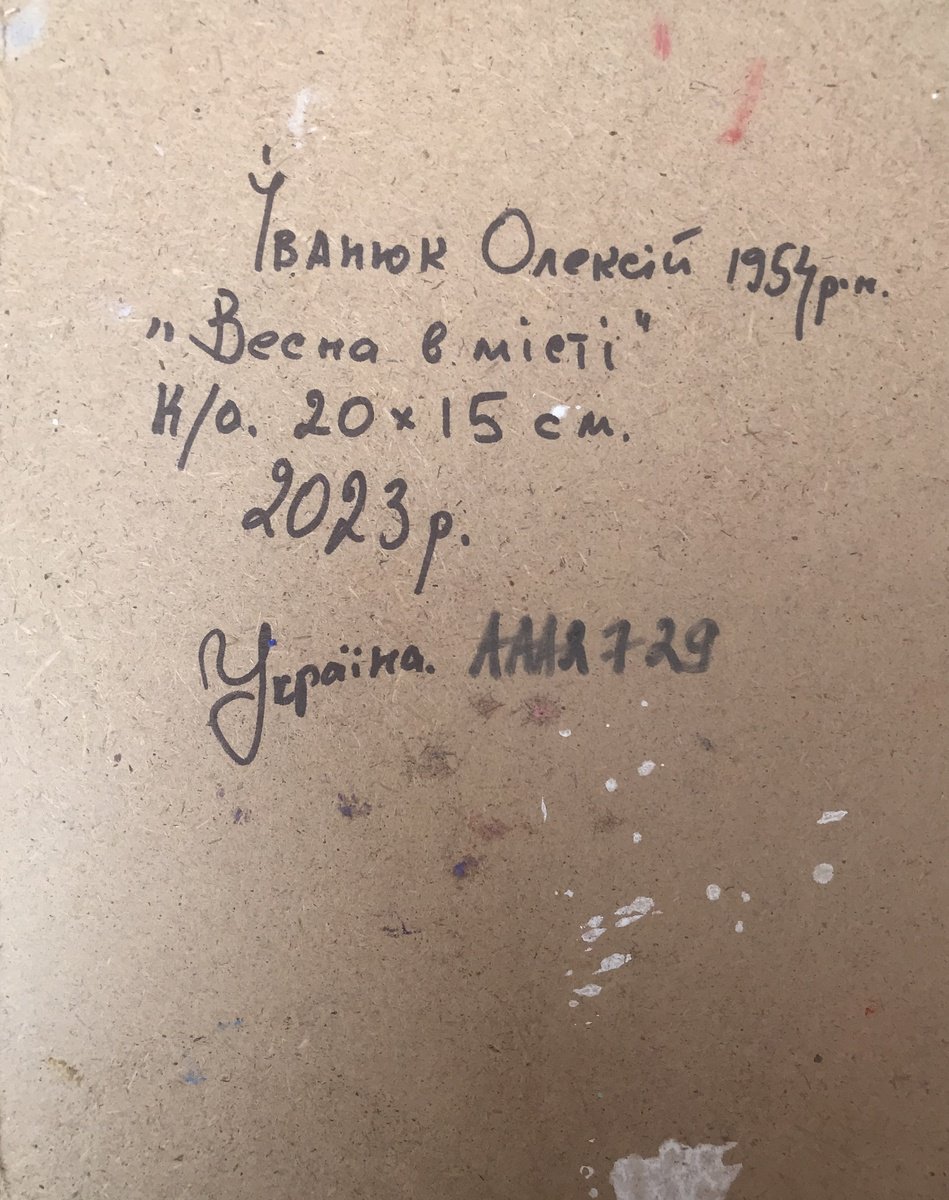 Іванюк Олексій 1954 р.н.
„Весна в місті"
К/о. 20×15 см.
2023 р.
Україна. АААЯ729